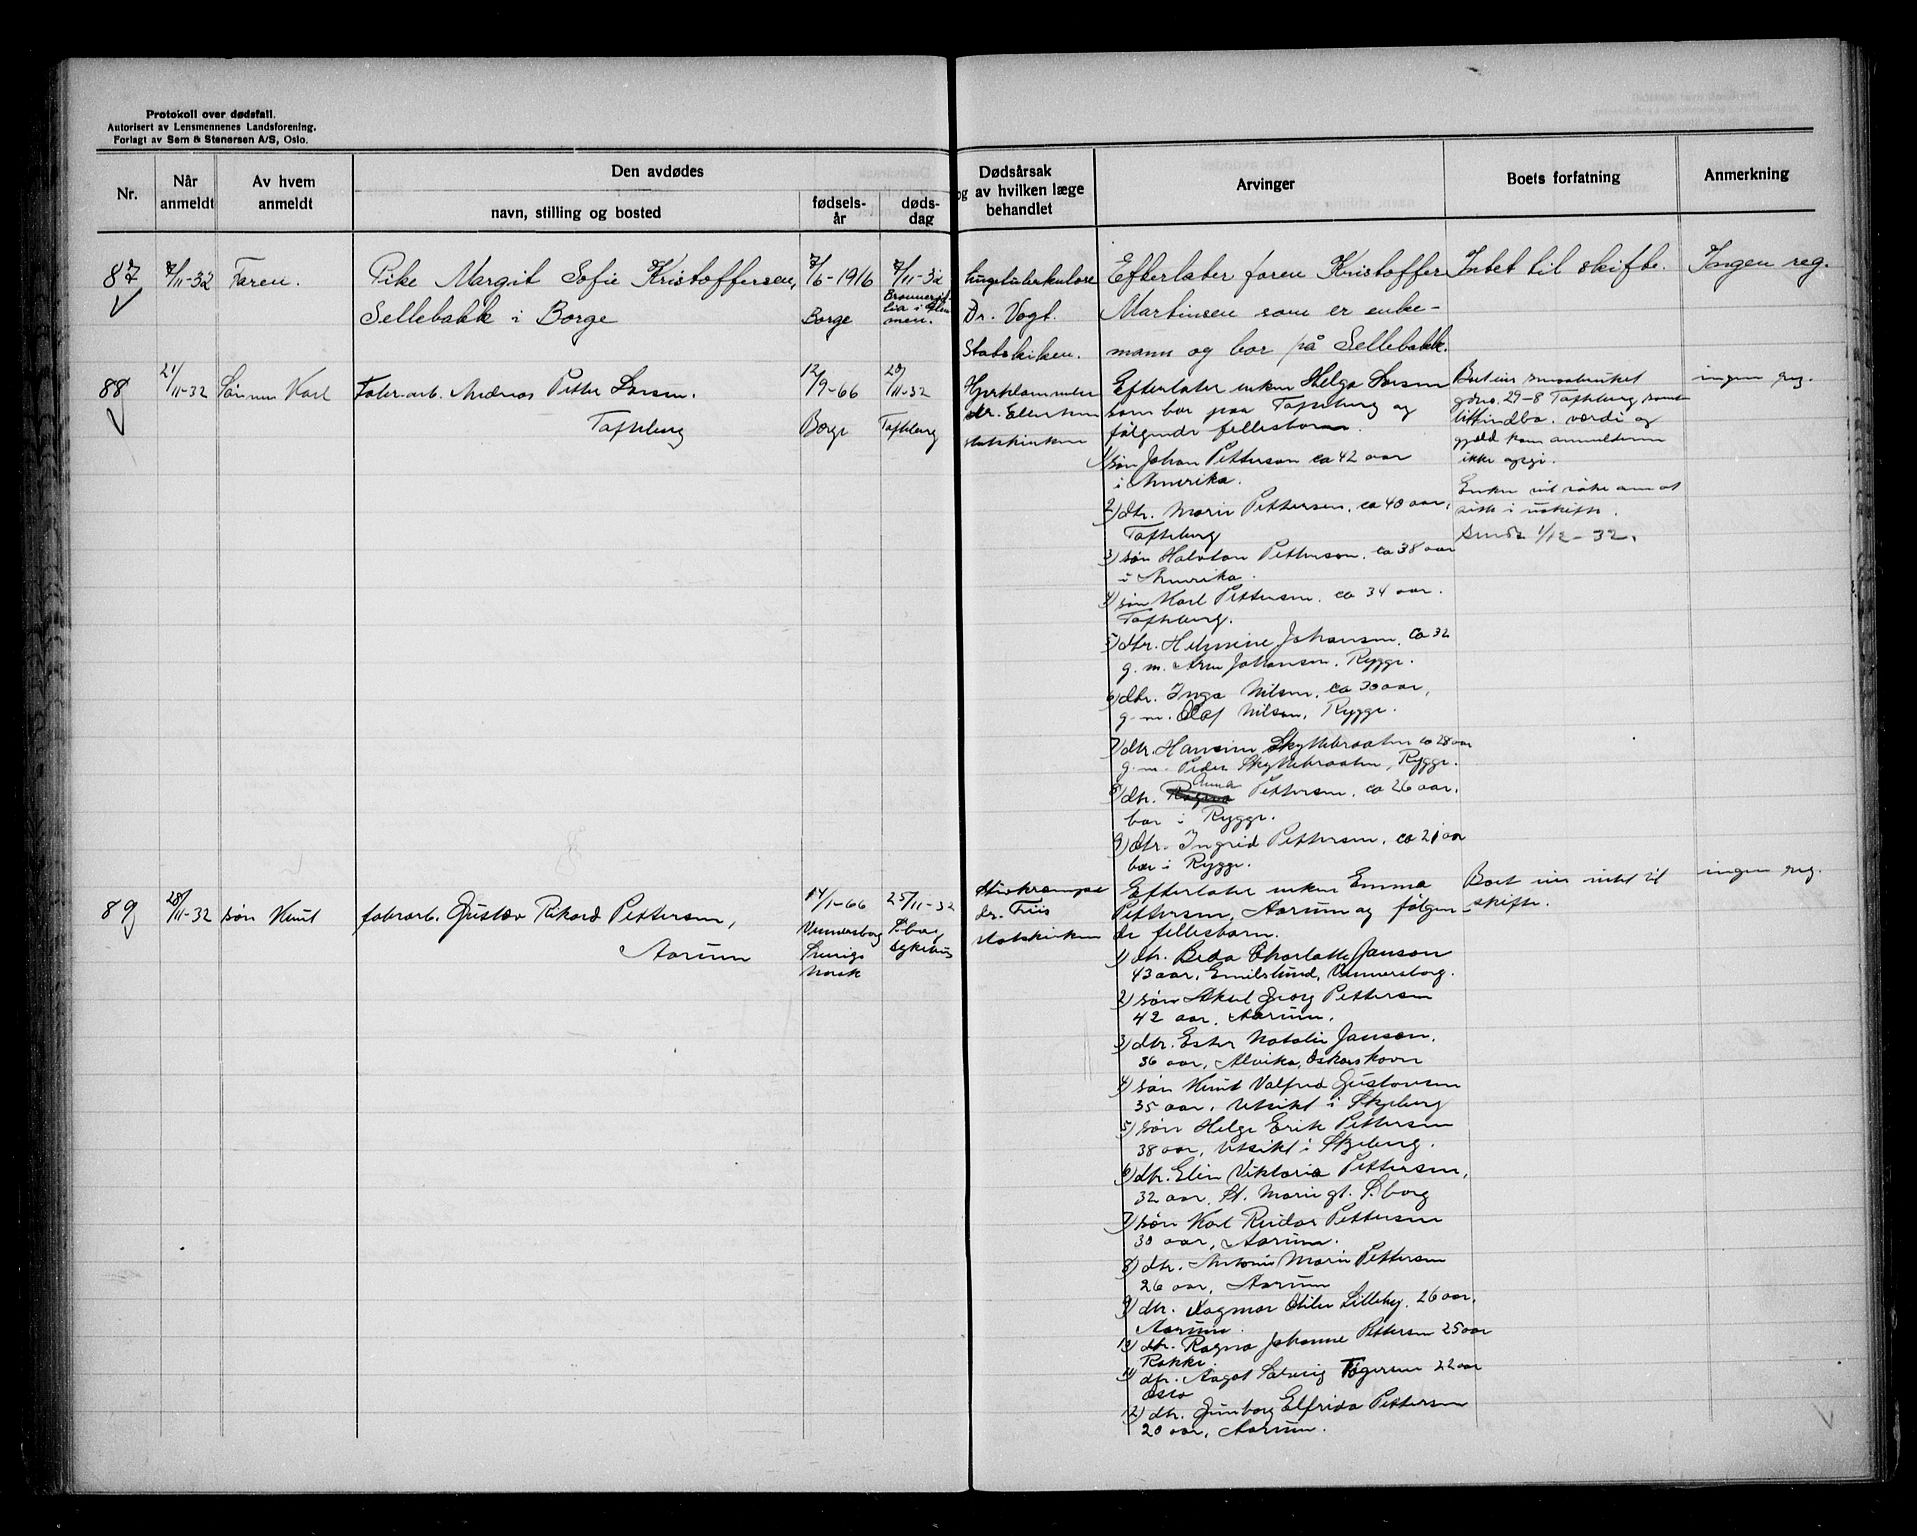 Protokoll over dødsfall.
Autorisert av Lensmennenes Landsforening.
Forlagt av Sem & Stenersen A/S, Oslo.
Nr.
Når anmeldt
Av hvem anmeldt
Den avdødes
navn, stilling og bosted
fødsels-
år
døds-
dag
Dødsårsak
og av hvilken læge
behandlet
Arvinger
Boets forfatning
Anmerkning
87
7/11-32
Faren.
Pike Margit Sofie Kristoffersen,
Sellebakk i Borge
7/6-1916
Borge
7/11-32
Dr. Vogt.
Statskirken.
Efterlater faren Kristoffer
Martinsen som er enke-
mann og bor på Sellebakk.
Intet til skifte.
Ingen reg.
88
21/11-32
Sønnen Karl
Fabr.arb. Andreas Petter Larsen.
Tofteberg
12/9-66
Borge
20/11-32
Tofteberg
Hjertelammelse
dr. Ellertsen
statskirken
Efterlater enken Helga Larsen
som bor paa Tofteberg og
følgende fellesbarn.
1) søn Johan Pettersen ca 42 aar
i Amerika.
2) dtr. Marie Pettersen, ca 40 aar,
Tofteberg
3) søn Halvdan Pettersen, ca 38 aar
i Amerika.
4) søn Karl Pettersen, ca 34 aar.
Tofteberg.
5) dtr. Helmine Johansen, ca 32
g.m. Arne Johansen, Rygge.
6) dtr. Inga Nilsen, ca 30 aar,
g.m. Olaf Nilsen, Rygge.
7) dtr. Hansine Skyttebraaten ca 28 aar
g.m. Peder Skyttebraaten, Rygge.
8) dtr. Ragna Anna Pettersen, ca 26 aar,
bor i Rygge.
9) dtr. Ingrid Pettersen, ca 21 aar
bor i Rygge.
Boet eier smaabruket
gdno. 29-8 Tofteberg
verdi og
gjeld kan anmelderen
ikke opgi.
Enken vil søke om at
sitte i uskifte.
Sendt 1/12-32.
ingen reg.
89
28/11-32
søn Knut
fabrarb. Gustav Rikard Pettersen,
Aarum
14/1-66
Vennersborg
Sverige
Norsk
25/11-32
S.borg
sykehus
Stivkrampe
dr. Friis
statskirken
Efterlater enken Emma
Pettersen, Aarum og følgen-
de fellesbarn.
1) dtr. Beda Charlotte Janson
43 aar, Emilslund, Vennersborg.
2) søn Aksel Georg Pettersen
42 aar, Aarum.
3) dtr. Ester Natalie Janson,
36 aar, Alvika, Oskarshavn
4) søn Knut Valfrid Gustavsen
35 aar, Utsikt i Skjeberg
5) søn Helge Erik Pettersen
38 aar, Utsikt i Skjeberg.
6) dtr. Elin Viktoria Pettersen,
32 aar, St. Marie gt. S.borg
7) søn Karl Reidar Pettersen
30 aar, Aarum.
8) dtr. Antonie Marie Pettersen
26 aar, Aarum
9) dtr. Dagmar Otilie Lilleby, 26 aar,
Aarum.
10) dtr. Ragna Johanne Pettersen 25 aar
Rakke.
11) dtr. Aagot Solveig Tøgersen 22 aar
Oslo
12) dtr. Gunborg Elfrida Pettersen
20 aar, Aarum.
Boet eier intet til
skifte.
ingen reg.